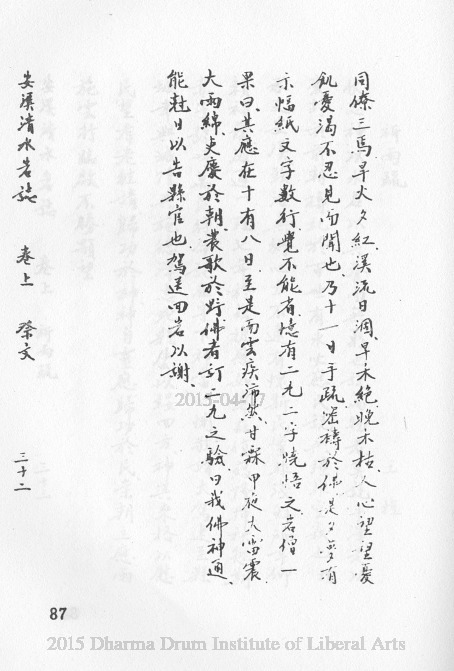 同僚三焉旱火夕紅溪流日涸早禾絕晚禾枯人心望望憂
飢憂渴不忍見而聞也乃十一日手疏密禱於佛是夕夢有
示幅紙文字數行覺不能省憶有二九二字曉悟之岩僧一
果曰其應在十有八日至是雨雲疾沛然甘霖甲夜大雷震
大雨綿吏慶於朝農歌於野佛者訂二九之驗曰我佛神通
能尅日以告縣官也駕送回岩以謝
安溪清水岩誌 卷上 祭文 三十二
2015-04-17
87
2015 Dharma Drum Institute of Liberal Arts